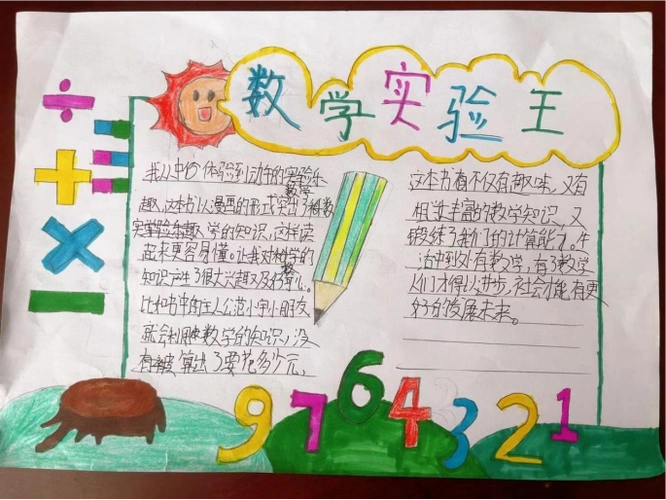 数学实验王
÷
+
×
−
我从中体验到动手的实验乐
趣,这本书以漫画的形式突出了数学
实验乐趣学的知识,这样读
起来更容易懂。让我对数学的
知识产生了很大兴趣及好奇心。
比如书中的主人公范小宇小朋友
就会利用数学的知识,没
有被算出了要花多少元,
这本书有不仅有趣味,又有
丰富的教学知识,又
锻练了我们的计算能力。生
活中到处有数学,有了数学
人们才得以进步,社会才能有更
好的发展未来。
9 7 6 4 3 2 1